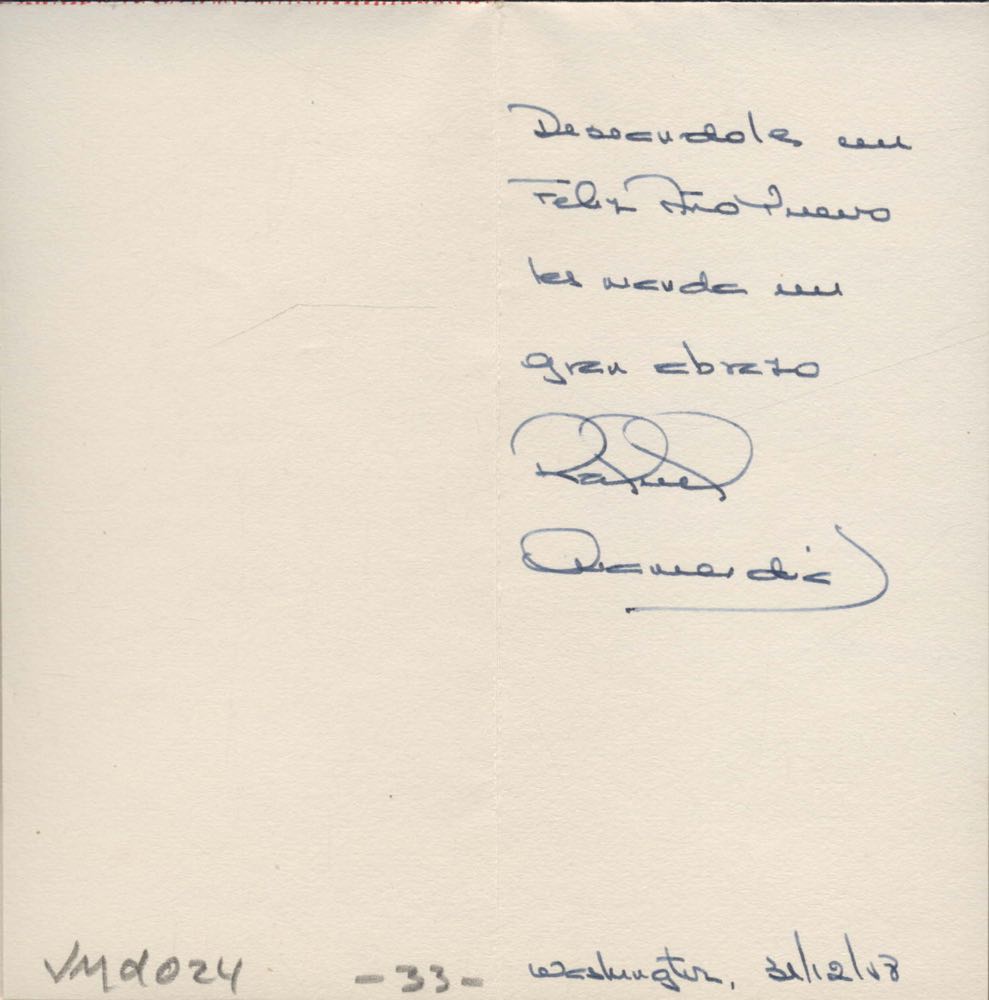 Deseandoles un
Feliz Año Nuevo
les manda un
gran abrazo
Rafael
VMd024
-33-
Washington, 31/12/